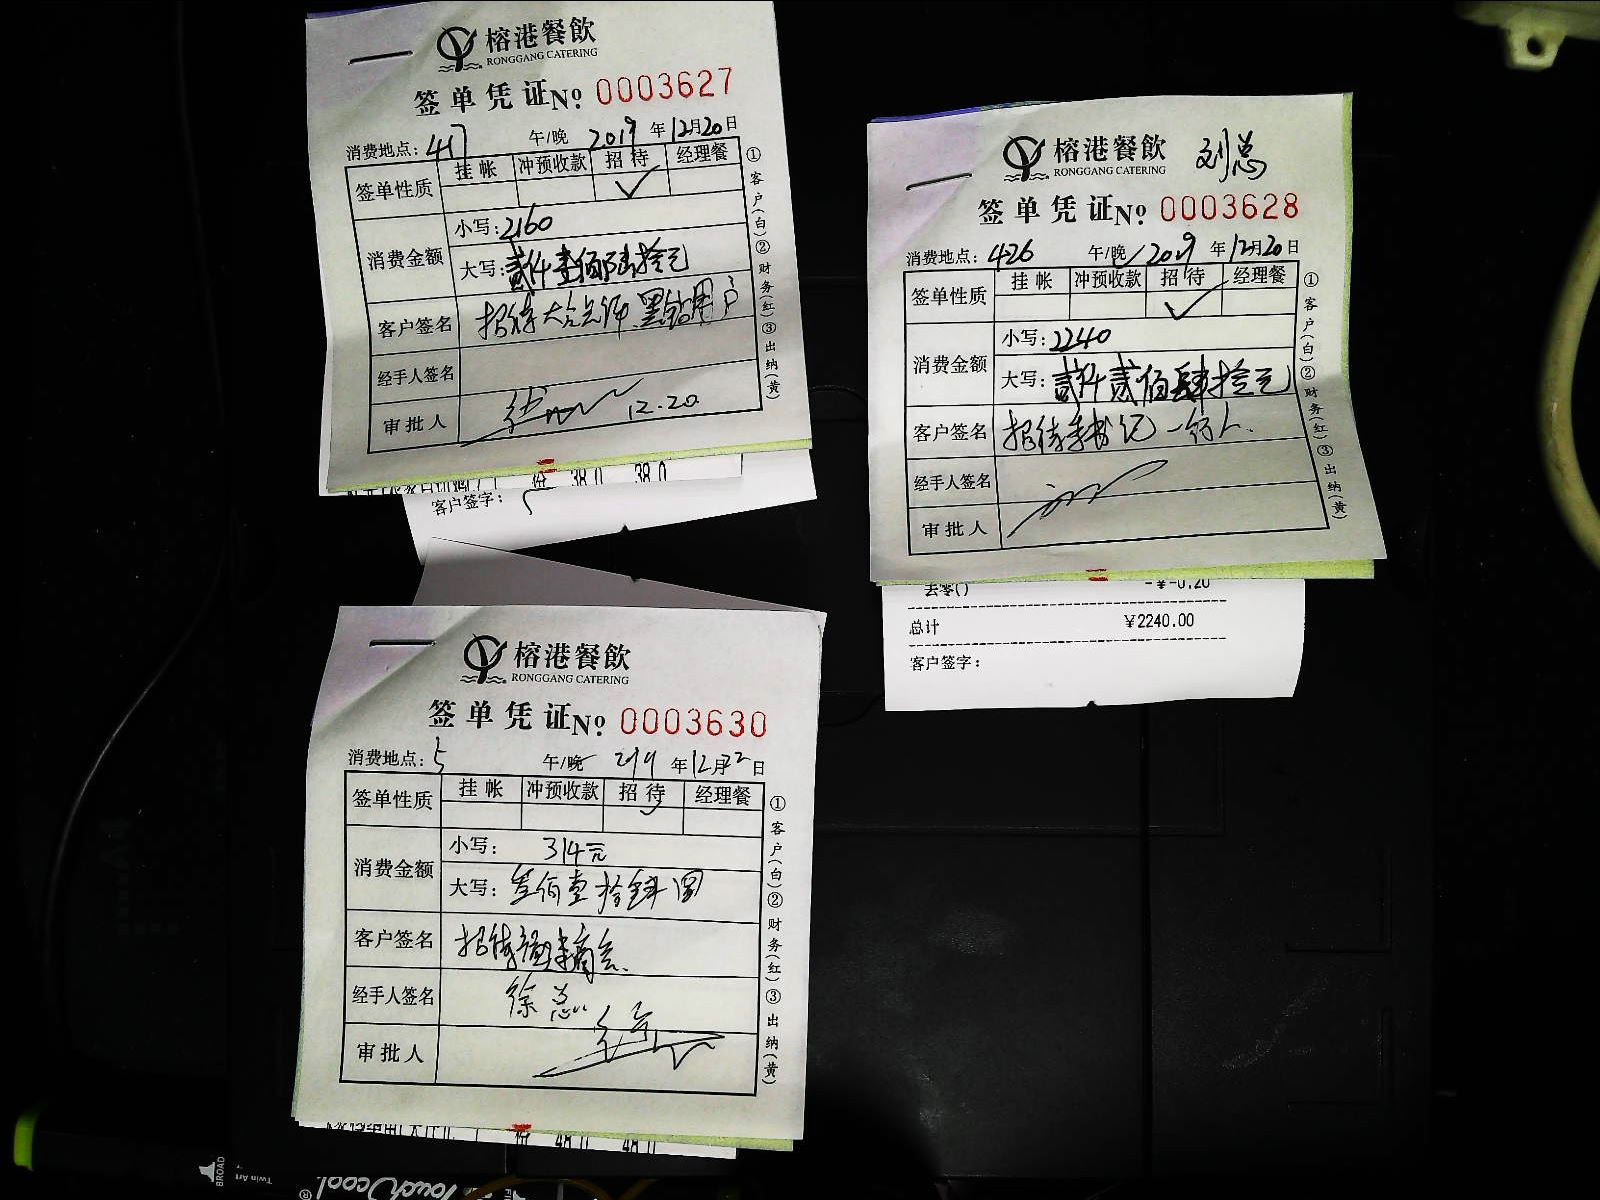 榕港餐飲
RONGGANG CATERING
签单凭证№ 0003627
消费地点：417 午/晚 2019年12月20日
签单性质 挂帐 冲预收款 招待 经理餐
✓
消费金额 小写：2160
大写：贰仟壹佰陆拾元
客户签名 招待大众点评黑钻用户
经手人签名
审批人 12.20
①客户(白)②财务(红)③出纳(黄)
份 38.0 38.0
客户签字：
榕港餐飲 刘总
RONGGANG CATERING
签单凭证№ 0003628
消费地点：426 午/晚 2019年12月20日
签单性质 挂帐 冲预收款 招待 经理餐
✓
消费金额 小写：2240
大写：贰仟贰佰肆拾元
客户签名 招待李书记一行人.
经手人签名
审批人
①客户(白)②财务(红)③出纳(黄)
去零() -￥-0.20
总计 ￥2240.00
客户签字：
榕港餐飲
RONGGANG CATERING
签单凭证№ 0003630
消费地点：5 午/晚 2019年12月22日
签单性质 挂帐 冲预收款 招待 经理餐
✓
消费金额 小写：314元
大写：叁佰壹拾肆圆
客户签名 招待福建商会.
经手人签名 徐总
审批人
①客户(白)②财务(红)③出纳(黄)
份 48.0 48.0
BROAD Twin Art Touch cool ®